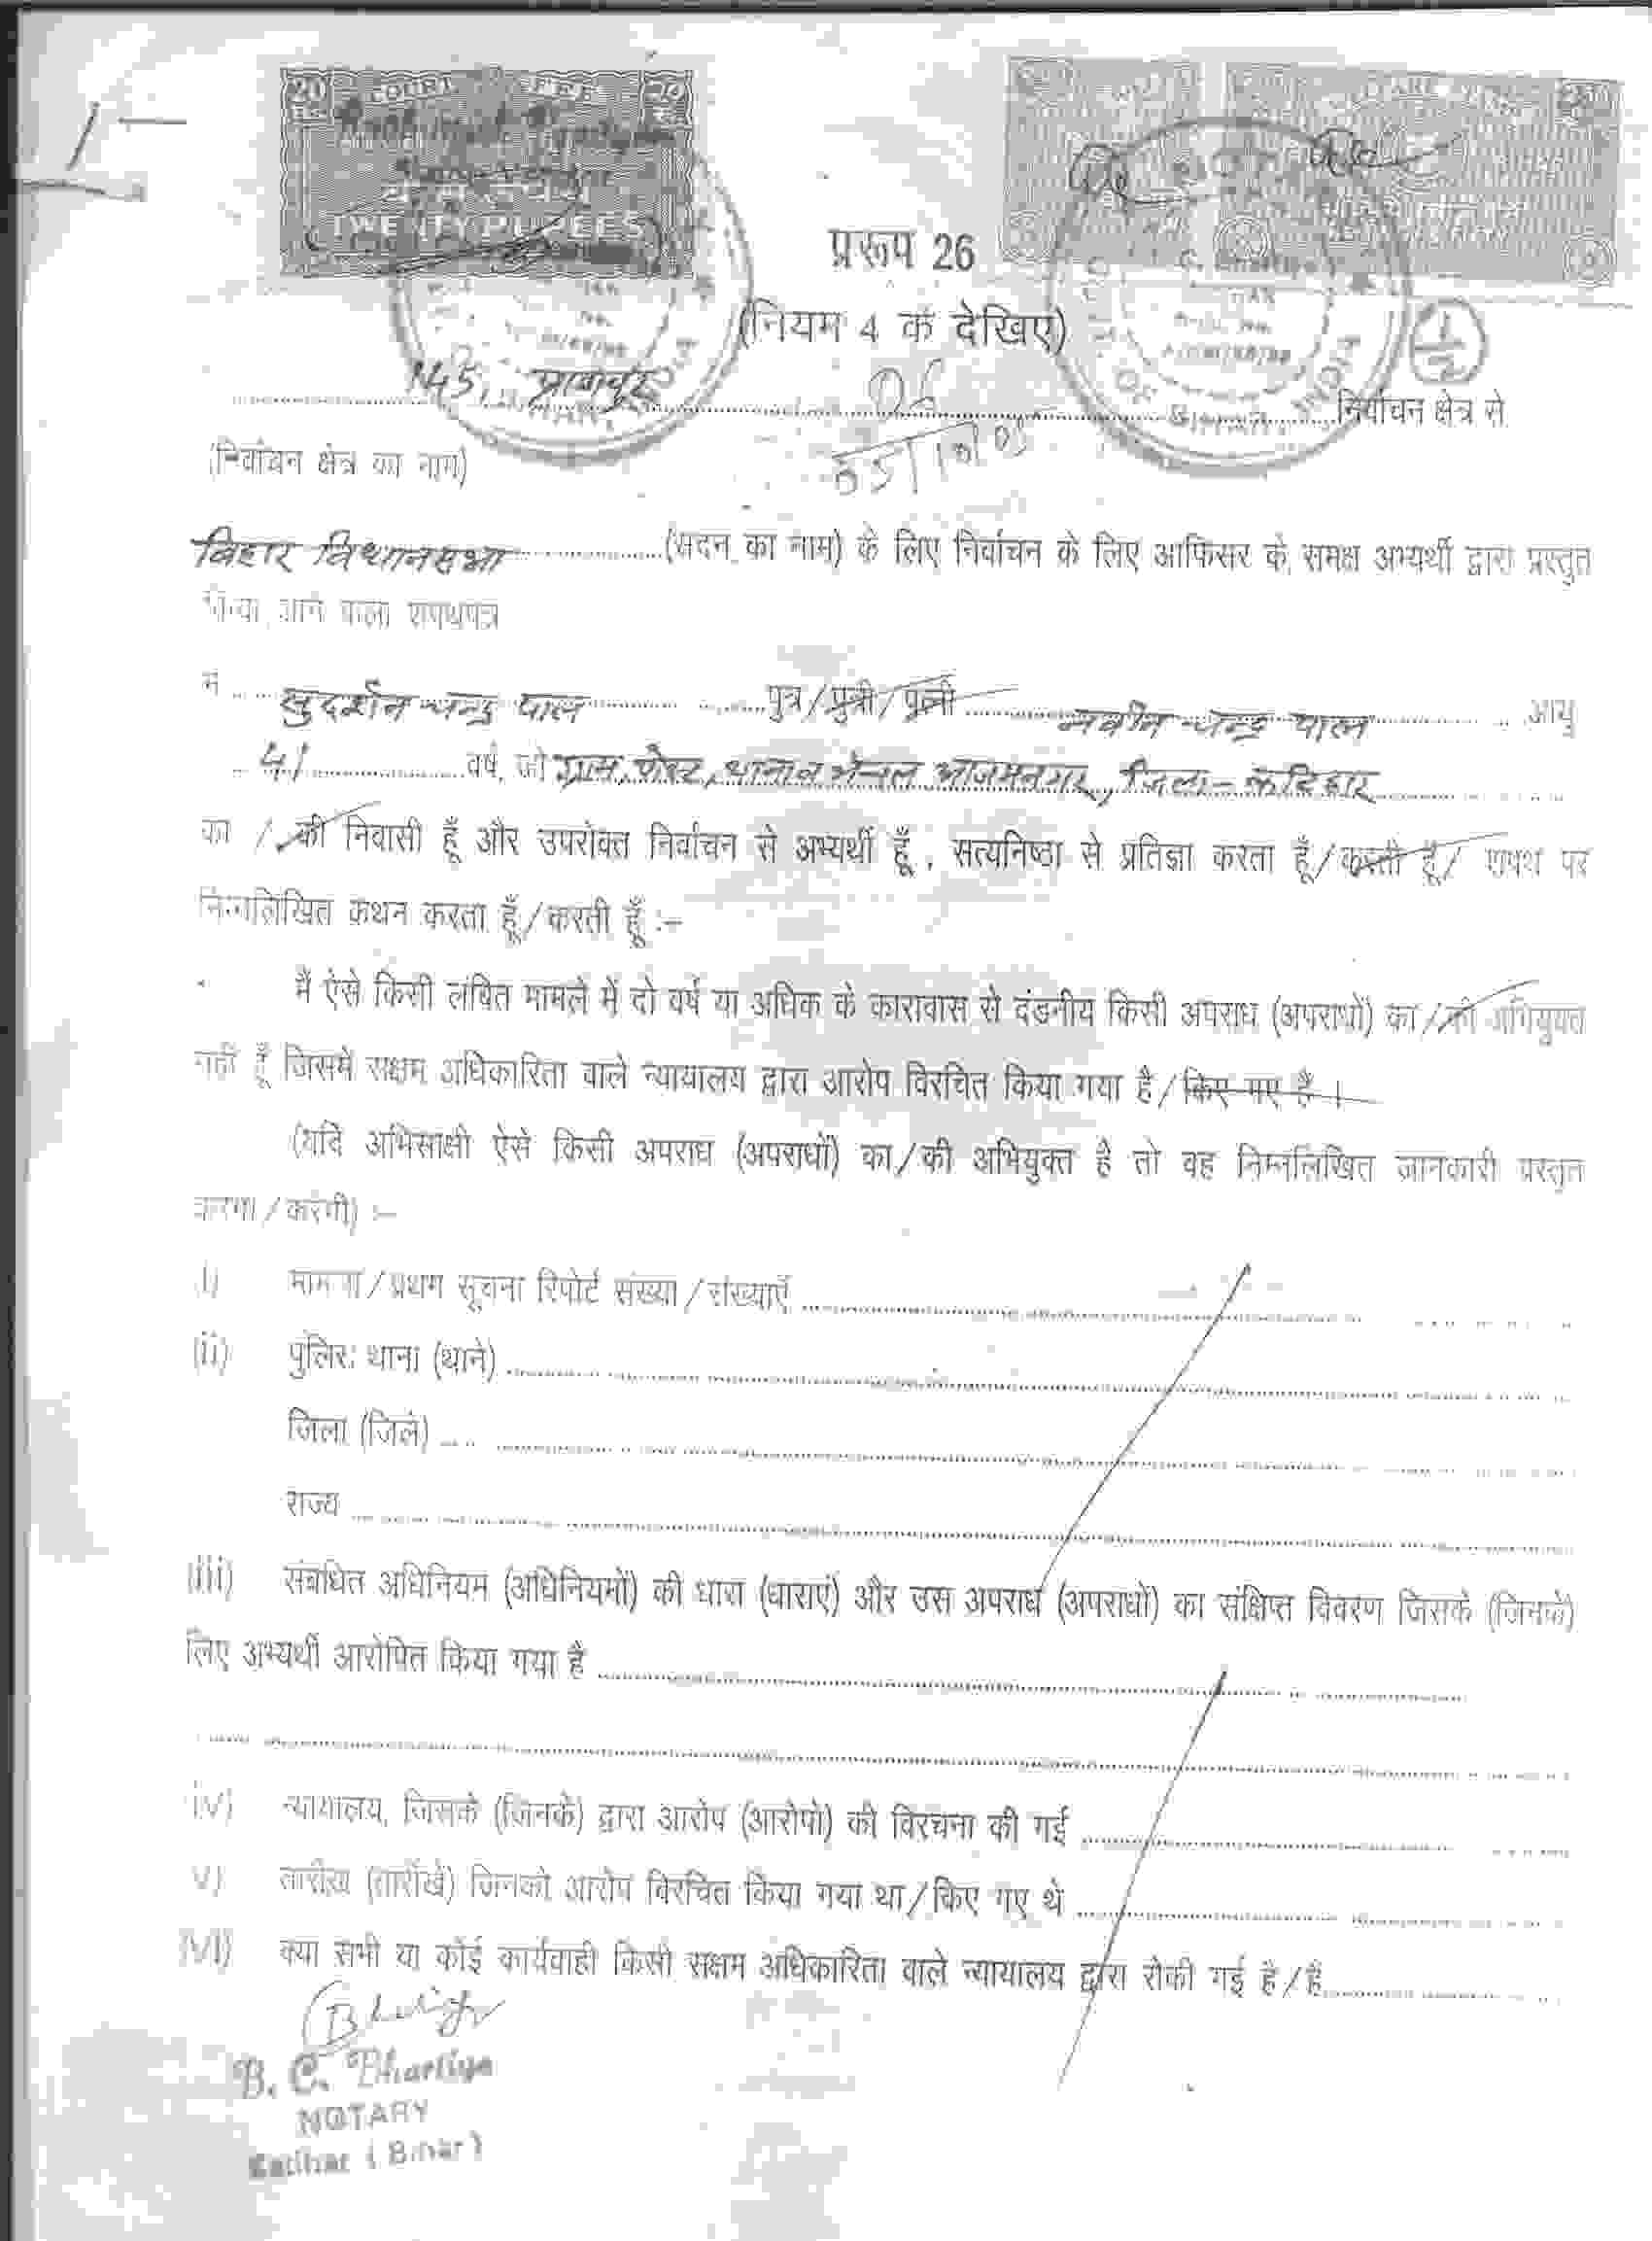 1-
20 COURT FEE 20
TWENTY RUPEES
प्ररूप 26
(नियम 4 क देखिए)
145, प्राणपुर निर्वाचन क्षेत्र से
(निर्वाचन क्षेत्र का नाम)
बिहार विधानसभा (सदन का नाम) के लिए निर्वाचन के लिए आफिसर के समक्ष अभ्यर्थी द्वारा प्रस्तुत
किया जाने वाला शपथपत्र
मैं सुदर्शन चन्द्र पाल पुत्र/पुत्री/पत्नी नवीन चन्द्र पाल आयु
41 वर्ष, जो ग्राम, थाना व अंचल आजमनगर, जिला - कटिहार
का / की निवासी हूँ और उपरोक्त निर्वाचन से अभ्यर्थी हूँ , सत्यनिष्ठा से प्रतिज्ञा करता हूँ/करती हूँ/ शपथ पर
निम्नलिखित कथन करता हूँ/करती हूँ :-
मैं ऐसे किसी लंबित मामले में दो वर्ष या अधिक के कारावास से दंडनीय किसी अपराध (अपराधों) का/की अभियुक्त
नहीं हूँ जिसमें सक्षम अधिकारिता वाले न्यायालय द्वारा आरोप विरचित किया गया है/किए गए हैं ।
(यदि अभिसाक्षी ऐसे किसी अपराध (अपराधों) का/की अभियुक्त है तो वह निम्नलिखित जानकारी प्रस्तुत
करेगा/करेगी) :-
(i) मामला/प्रथम सूचना रिपोर्ट संख्या/संख्याएँ
(ii) पुलिस थाना (थाने)
जिला (जिले)
राज्य
(iii) संबंधित अधिनियम (अधिनियमों) की धारा (धाराएं) और उस अपराध (अपराधों) का संक्षिप्त विवरण जिसके (जिनके)
लिए अभ्यर्थी आरोपित किया गया है
(iv) न्यायालय, जिसके (जिनके) द्वारा आरोप (आरोपों) की विरचना की गई
(v) तारीख (तारीखें) जिनको आरोप विरचित किया गया था/किए गए थे
(vi) क्या सभी या कोई कार्यवाही किसी सक्षम अधिकारिता वाले न्यायालय द्वारा रोकी गई है/हैं
B. C. Bhartiya
NOTARY
Katihar (Bihar)